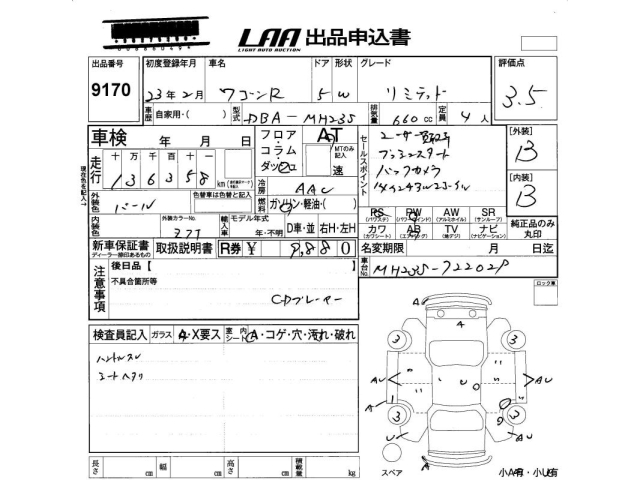 LAA 出品申込書
LIGHT AUTO AUCTION
出品番号 初度登録年月 車名 ドア 形状 グレード 評価点
9170 23年2月 ワゴンR 5 W リミテッド 3.5
車歴 自家用・( ) 型式 DBA-MH23S 排気量 660cc 定員 4人
車検 年 月 日 フロア・コラム・ダッシュ AT セールスポイント [外装]
MTのみ記入 プッシュスタート B
走行 十万 万 千 百 十 136358 km 速 バックカメラ
冷房 AAC [内装]
現在の色を記入 外装色 パール 色替車は色替と記入 燃料 ガソリン・軽油・( ) B
内装色 外装カラーNo. Z7T 輸入車 モデル年式 年・不明 D車・並 右H・左H PS (パワステ) PW (パワーウインド) AW (アルミホイル) SR (サンルーフ)
カワ (カワシート) AB (エアバック) TV (地デジ) ナビ (ナビゲーション) 純正品のみ丸印
新車保証書 取扱説明書 R券 ¥ 9,880 名変期限 月 日迄
ディーラー捺印あるもの
車台No. MH23S-722029
注意事項 後日品【 】 ロック車
不具合箇所等
CDプレーヤー
検査員記入 ガラス A・X要ス 室内シート A・コゲ・穴・汚れ・破れ
ハンドルスレ
シートヘタリ
A
3 3
AU AU
A 1
3 3
U A
スペア A
長さ cm 幅 cm 高さ cm 積載量 kg
小A有・小U有